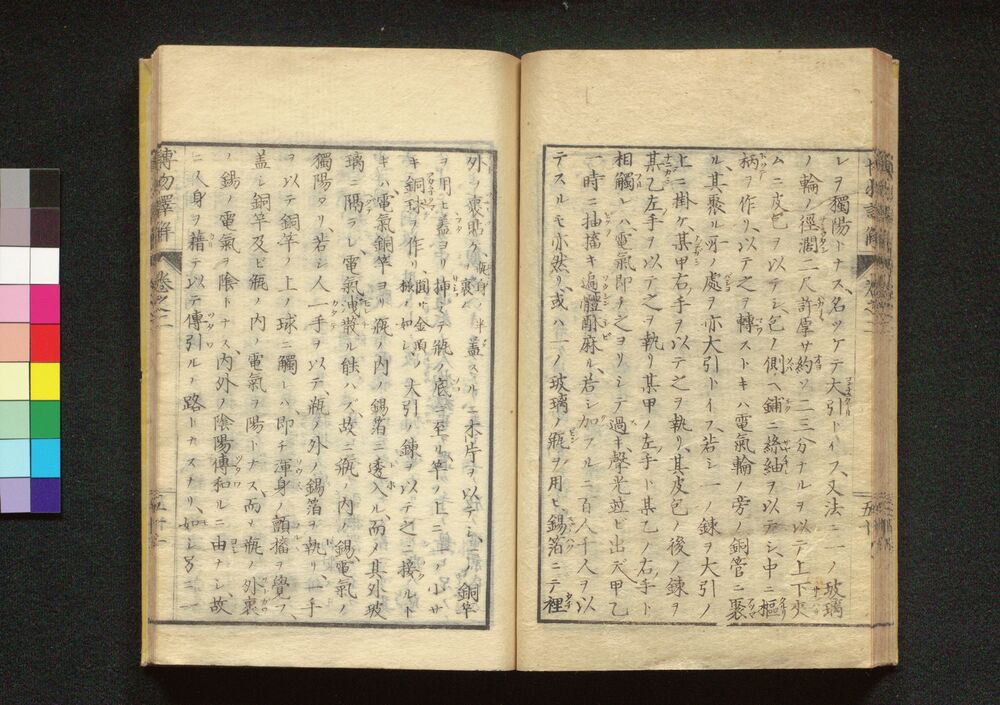 レヲ獨陽トナス、名ツケテ大引トイフ、又法ニ一ノ玻璃
ノ輪ノ徑濶二尺許厚サ約ソ二三分ナルヲ以テ上下夾
ムニ皮包ヲ以テシ包ノ側ヘ鋪ニ絲紬ヲ以テシ、中ニ樞
柄ヲ作リ、以テ之ヲ轉ストキハ電氣輪ノ旁ノ銅管ニ聚
ル、其聚ル所ノ處ヲ亦大引トイフ、若シ一ノ錬ヲ大引ノ
上ニ掛ケ、其甲右手ヲ以テ之ヲ執リ、其皮包ノ後ノ錬ヲ
其乙左手ヲ以テ之ヲ執リ某甲ノ左手ト其乙ノ右手ト
相觸レハ、電氣即チ之ヨリシテ過キ聲光並ビ出ズ甲乙
一時ニ抽搐キ遍體酥麻ル、若シ加フルニ百人千人ヲ以
テスルモ亦然リ、或ハ一ノ玻璃ノ甁ヲ用ヒ、錫箔ニテ裡
外ノ裏貼ケ、甁身ノ半ヲ裏ノ蓋スルニ木片ヲ以テシ、一ノ銅竿
ヲ用ヒ蓋ヨリ挿シテ甁ノ底ニ至リ竿ノ上ニ一ノ小サ
キ銅球ヲ作リ、圓サ金頭ノ樣ノ如シ、大引ノ錬ヲ以テ之ニ接ルト
キハ、電氣銅竿ヨリ甁ノ内ノ錫箔ニ透入ル、而メ其外玻
璃ニ隔ラレ、電氣洩散ル能ハズ、故ニ甁ノ内ノ錫電氣ノ
獨陽タリ、若シ人一手ヲ以テ甁ノ外ノ錫箔ヲ執リ、一手
ヲ以テ銅竿ノ上ノ球ニ觸レハ、即チ渾身顫搐ヲ覺フ、
蓋シ銅竿及ビ甁ノ内ノ電氣ヲ陽トナス、而メ甁ノ外裏
ノ錫ノ電氣ヲ陰トナス内外ノ陰陽傳和ルニ由ナシ、故
ニ人身ヲ藉テ以テ傳引ルノ路トナスナリ、如シ另ニ一
博物譯解
卷之二